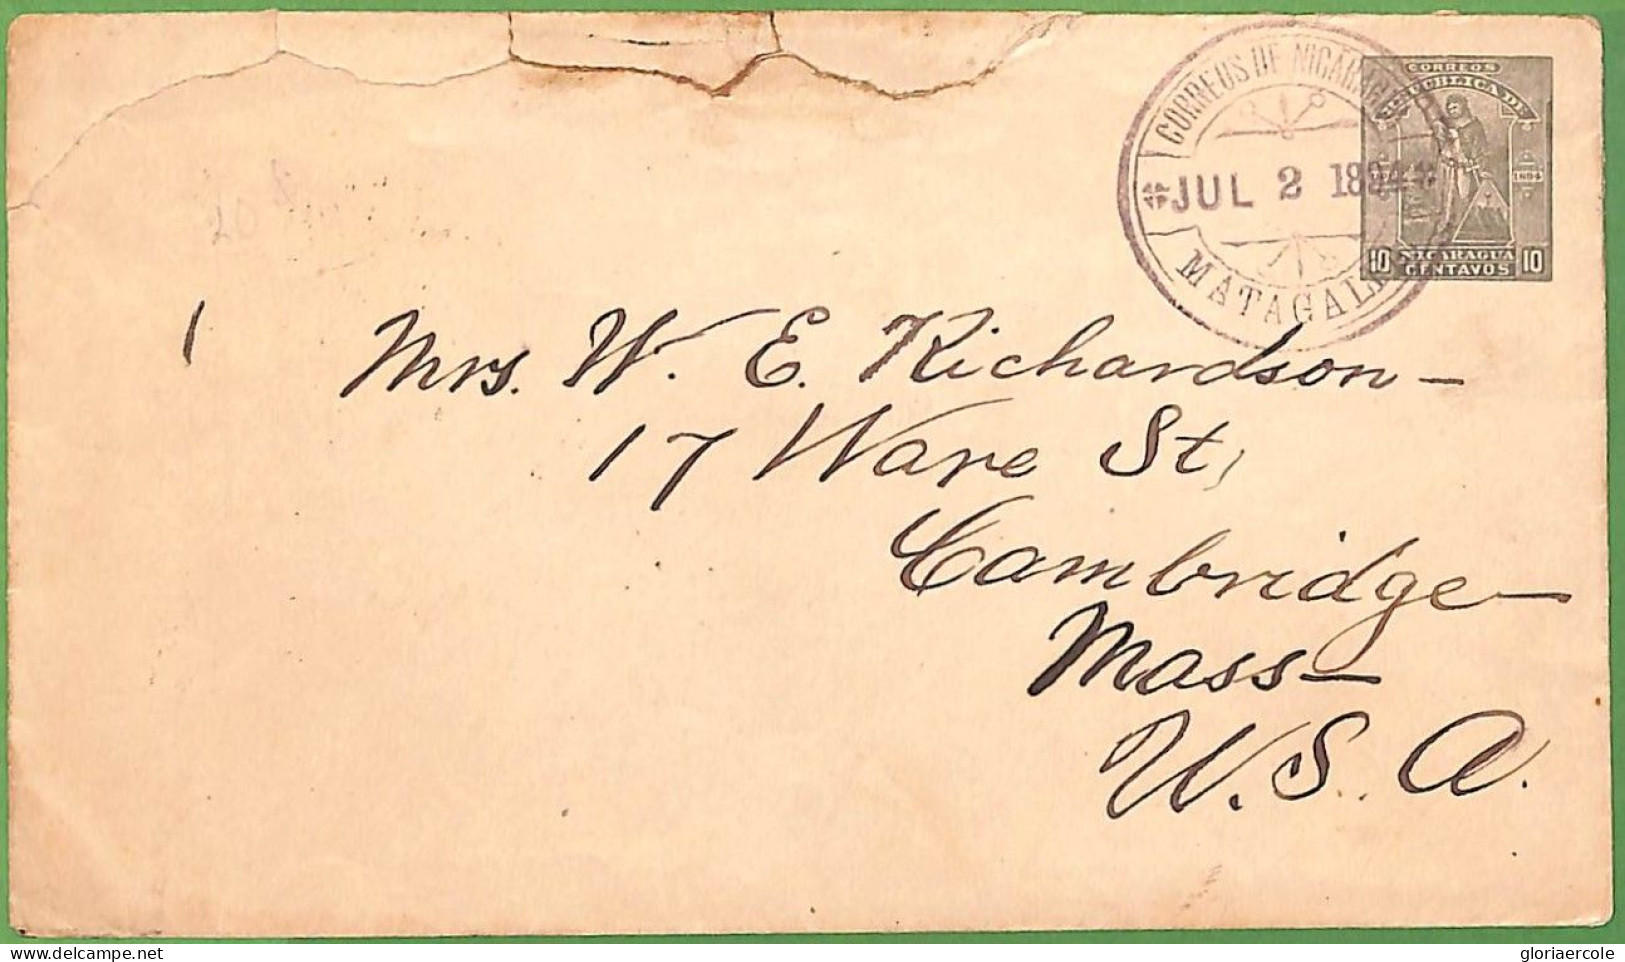 CORREOS DE NICARAGUA
JUL 2 1894
MATAGALPA
CORREOS
REPUBLICA DE
1894
10 NICARAGUA 10
CENTAVOS
20
Mrs. W. E. Richardson -
17 Ware St,
Cambridge -
Mass -
U. S. A.
www.delcampe.net
gloriaercole